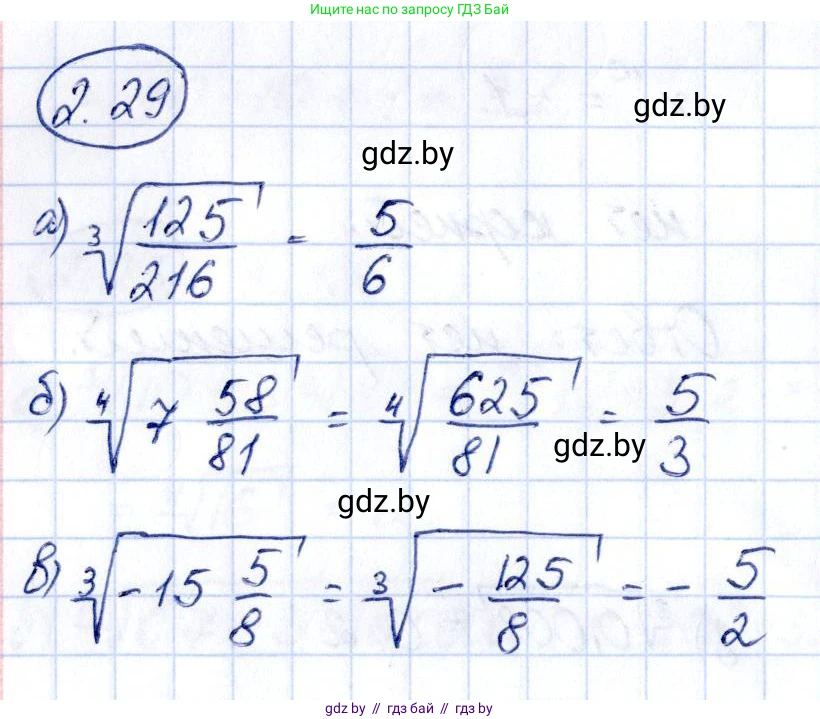 Ищите нас по запросу ГДЗ БАЙ
2.29
gdz.by
gdz.by
а) ∛(125/216) = 5/6
б) ∜(7 58/81) = ∜(625/81) = 5/3
gdz.by
gdz.by
в) ∛(-15 5/8) = ∛(-125/8) = -5/2
gdz.by // гдз бай // gdz.by